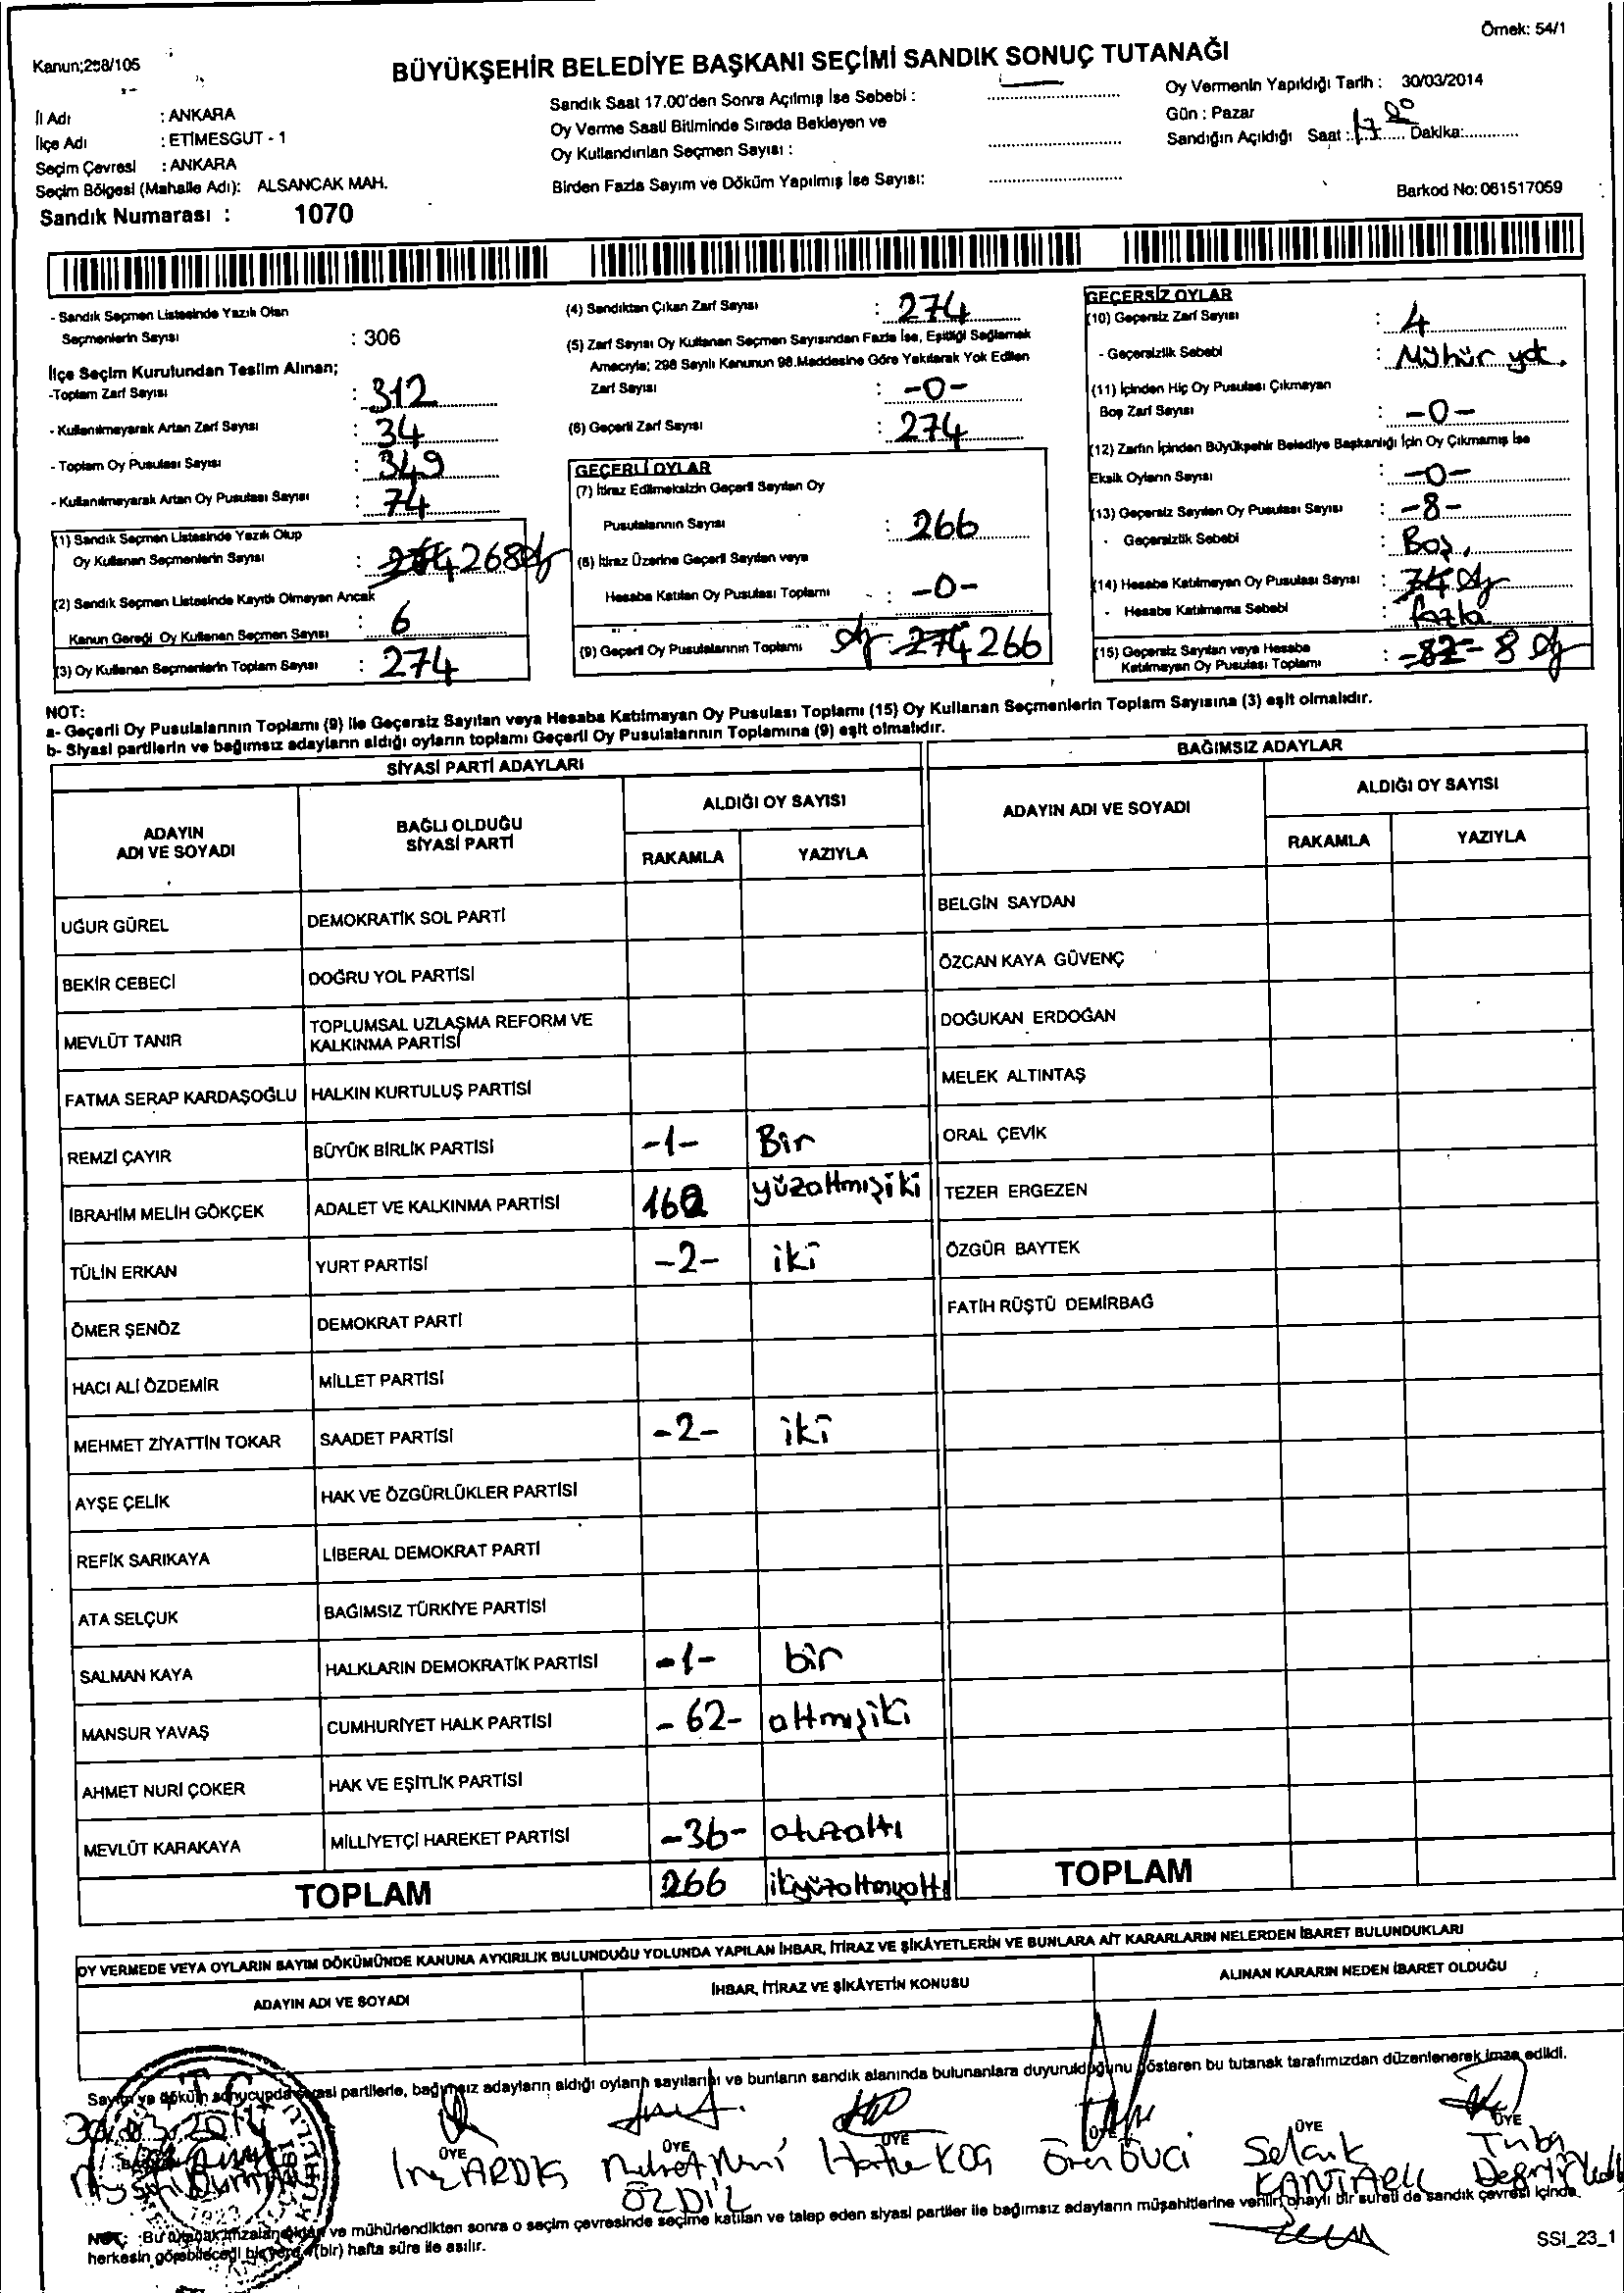 Örnek: 54/1
Kanun;298/105
BÜYÜKŞEHİR BELEDİYE BAŞKANI SEÇİMİ SANDIK SONUÇ TUTANAĞI
İl Adı : ANKARA
İlçe Adı : ETİMESGUT - 1
Seçim Çevresi : ANKARA
Seçim Bölgesi (Mahalle Adı): ALSANCAK MAH.
Sandık Numarası : 1070
Sandık Saat 17.00'den Sonra Açılmış İse Sebebi :
Oy Verme Saati Bitiminde Sırada Bekleyen ve
Oy Kullandırılan Seçmen Sayısı :
Birden Fazla Sayım ve Döküm Yapılmış İse Sayısı:
Oy Vermenin Yapıldığı Tarih : 30/03/2014
Gün : Pazar
Sandığın Açıldığı Saat : 17 Dakika:
Barkod No: 061517059
- Sandık Seçmen Listesinde Yazılı Olan
Seçmenlerin Sayısı : 306
İlçe Seçim Kurulundan Teslim Alınan;
-Toplam Zarf Sayısı : 312
- Kullanılmayarak Artan Zarf Sayısı : 34
- Toplam Oy Pusulası Sayısı : 349
- Kullanılmayarak Artan Oy Pusulası Sayısı : 74
(1) Sandık Seçmen Listesinde Yazılı Olup
Oy Kullanan Seçmenlerin Sayısı : 274 268
(2) Sandık Seçmen Listesinde Kayıtlı Olmayan Ancak
Kanun Gereği Oy Kullanan Seçmen Sayısı : 6
(3) Oy Kullanan Seçmenlerin Toplam Sayısı : 274
(4) Sandıktan Çıkan Zarf Sayısı : 274
(5) Zarf Sayısı Oy Kullanan Seçmen Sayısından Fazla İse, Eşitliği Sağlamak
Amacıyla; 298 Sayılı Kanunun 98.Maddesine Göre Yakılarak Yok Edilen
Zarf Sayısı : -0-
(6) Geçerli Zarf Sayısı : 274
GEÇERLİ OYLAR
(7) İtiraz Edilmeksizin Geçerli Sayılan Oy
Pusulalarının Sayısı : 266
(8) İtiraz Üzerine Geçerli Sayılan veya
Hesaba Katılan Oy Pusulası Toplamı : -0-
(9) Geçerli Oy Pusulalarının Toplamı : 274 266
GEÇERSİZ OYLAR
(10) Geçersiz Zarf Sayısı : 4
- Geçersizlik Sebebi : Mühür yok.
(11) İçinden Hiç Oy Pusulası Çıkmayan
Boş Zarf Sayısı : -0-
(12) Zarfın İçinden Büyükşehir Belediye Başkanlığı İçin Oy Çıkmamış İse
Eksik Oyların Sayısı : -0-
(13) Geçersiz Sayılan Oy Pusulası Sayısı : -8-
- Geçersizlik Sebebi : Boş,
(14) Hesaba Katılmayan Oy Pusulası Sayısı : 74
- Hesaba Katılmama Sebebi : fazla
(15) Geçersiz Sayılan veya Hesaba
Katılmayan Oy Pusulası Toplamı : -82- 8
NOT:
a- Geçerli Oy Pusulalarının Toplamı (9) ile Geçersiz Sayılan veya Hesaba Katılmayan Oy Pusulası Toplamı (15) Oy Kullanan Seçmenlerin Toplam Sayısına (3) eşit olmalıdır.
b- Siyasi partilerin ve bağımsız adayların aldığı oyların toplamı Geçerli Oy Pusulalarının Toplamına (9) eşit olmalıdır.
SİYASİ PARTİ ADAYLARI
BAĞIMSIZ ADAYLAR
ADAYIN
ADI VE SOYADI
BAĞLI OLDUĞU
SİYASİ PARTİ
ALDIĞI OY SAYISI
RAKAMLA YAZIYLA
ADAYIN ADI VE SOYADI
ALDIĞI OY SAYISI
RAKAMLA YAZIYLA
UĞUR GÜREL DEMOKRATİK SOL PARTİ
BELGİN SAYDAN
BEKİR CEBECİ DOĞRU YOL PARTİSİ
ÖZCAN KAYA GÜVENÇ
MEVLÜT TANIR TOPLUMSAL UZLAŞMA REFORM VE
KALKINMA PARTİSİ
DOĞUKAN ERDOĞAN
FATMA SERAP KARDAŞOĞLU HALKIN KURTULUŞ PARTİSİ
MELEK ALTINTAŞ
REMZİ ÇAYIR BÜYÜK BİRLİK PARTİSİ -1- Bir
ORAL ÇEVİK
İBRAHİM MELİH GÖKÇEK ADALET VE KALKINMA PARTİSİ 162 yüzaltmışiki
TEZER ERGEZEN
TÜLİN ERKAN YURT PARTİSİ -2- iki
ÖZGÜR BAYTEK
ÖMER ŞENÖZ DEMOKRAT PARTİ
FATİH RÜŞTÜ DEMİRBAĞ
HACI ALİ ÖZDEMİR MİLLET PARTİSİ
MEHMET ZİYATTİN TOKAR SAADET PARTİSİ -2- iki
AYŞE ÇELİK HAK VE ÖZGÜRLÜKLER PARTİSİ
REFİK SARIKAYA LİBERAL DEMOKRAT PARTİ
ATA SELÇUK BAĞIMSIZ TÜRKİYE PARTİSİ
SALMAN KAYA HALKLARIN DEMOKRATİK PARTİSİ -1- bir
MANSUR YAVAŞ CUMHURİYET HALK PARTİSİ -62- altmışiki
AHMET NURİ ÇOKER HAK VE EŞİTLİK PARTİSİ
MEVLÜT KARAKAYA MİLLİYETÇİ HAREKET PARTİSİ -36- otuzaltı
TOPLAM 266 ikiyüzaltmışaltı TOPLAM
OY VERMEDE VEYA OYLARIN SAYIM DÖKÜMÜNDE KANUNA AYKIRILIK BULUNDUĞU YOLUNDA YAPILAN İHBAR, İTİRAZ VE ŞİKÂYETLERİN VE BUNLARA AİT KARARLARIN NELERDEN İBARET BULUNDUKLARI
ADAYIN ADI VE SOYADI İHBAR, İTİRAZ VE ŞİKÂYETİN KONUSU ALINAN KARARIN NEDEN İBARET OLDUĞU
Sayım ve döküm sonucunda siyasi partilerle, bağımsız adayların aldığı oyların sayılarını ve bunların sandık alanında bulunanlara duyurulduğunu gösteren bu tutanak tarafımızdan düzenlenerek imza edildi.
30.03.2014
ÜYE ÜYE ÜYE ÜYE ÜYE
ÖZDİL
Selçuk
Tuba
NOT: Bu tutanak imzalandıktan ve mühürlendikten sonra o seçim çevresinde seçime katılan ve talep eden siyasi partiler ile bağımsız adayların müşahitlerine verilir, onaylı bir sureti de sandık çevresi içinde
herkesin görebileceği bir yere 1(bir) hafta süre ile asılır.
SSI_23_1